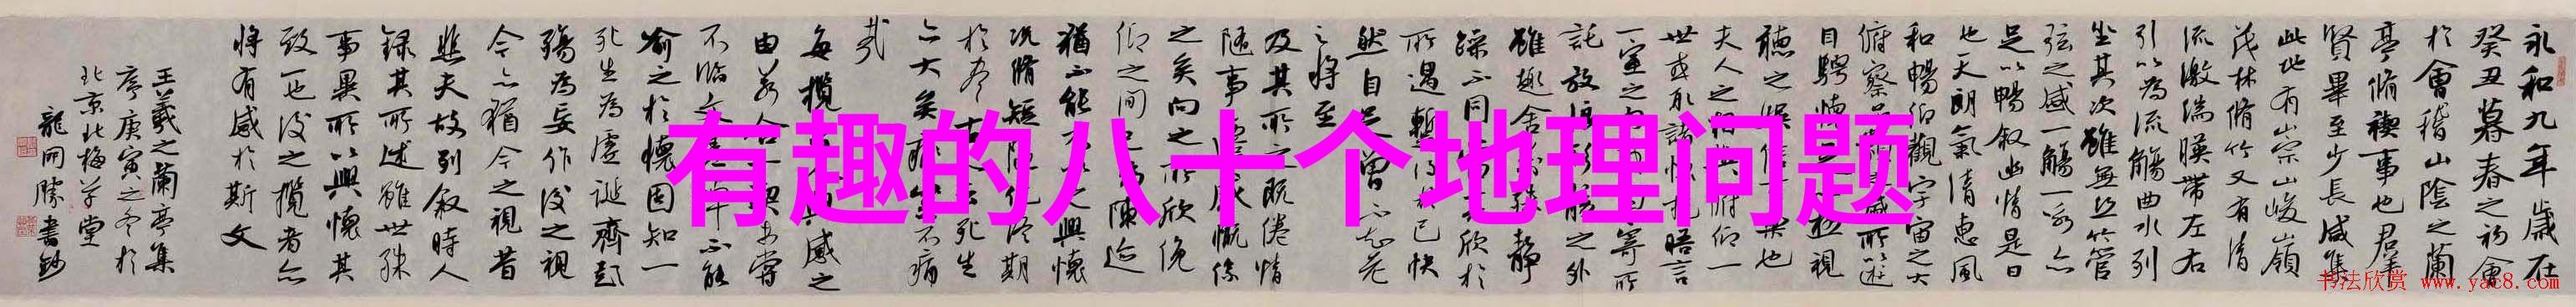 永和九年歲在
癸丑暮春之初會
於會稽山陰之蘭
亭脩禊事也群
賢畢至少長咸集
此地有崇山峻嶺
茂林脩竹又有清
流激湍暎帶左右
引以為流觴曲水列
坐其次雖無絲竹管
弦之盛一觴一詠亦
足以暢叙幽情是日
也天朗氣清惠風
和暢仰觀宇宙之大
俯察品類之盛所以遊
目騁懷足以極視
聽之娛信可樂也
夫人之相與俯仰一
世或取諸懷抱晤言
一室之內或因寄所
託放浪形骸之外
雖趣舍萬殊靜
躁不同當其欣於
所遇暫得於己快
然自足曾不知老
之將至
及其所之既倦情
隨事遷感慨係
之矣向之所欣俛
仰之間已為陳迹
猶不能不以之興懷
況脩短隨化終期
於盡古人云死生
亦大矣豈不痛
哉
每攬昔人興感之
由若合一契未嘗
不臨文嗟悼不能
喻之於懷固知一
死生為虛誕齊彭
殤為妄作後之視
今亦猶今之視昔
悲夫故列叙時人
錄其所述雖世殊
事異所以興懷其
致一也後之攬者亦
將有感於斯文
王羲之蘭亭集
序庚寅之冬於
北京北梅草堂
龍開勝書鈔
有趣的八十个地理问题
书法欣赏 www.yac8.com